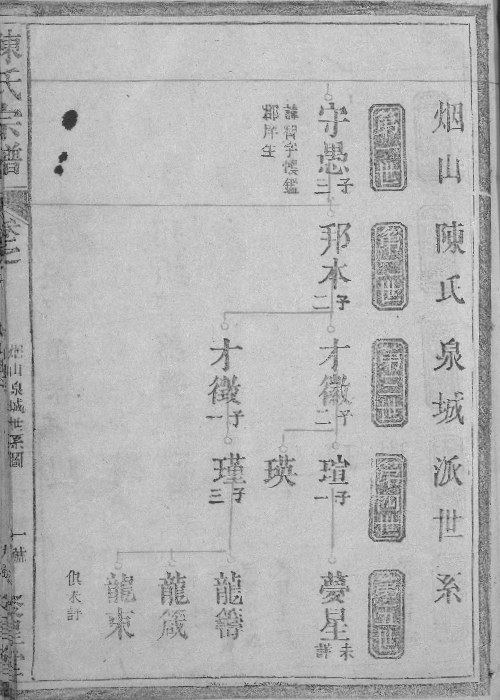 烟山陳氏泉城派世系
第一世
守愚
三子
諱智字懷鑑
郡庠生
第二世
邦本
二子
第三世
才徽
二子
才徵
一子
第四世
瑄
一子
瑛
瑾
三子
第五世
夢星
未詳
龍籌
龍箴
龍東
俱未詳
陳氏宗譜
卷之
烟山泉城世系圖
一